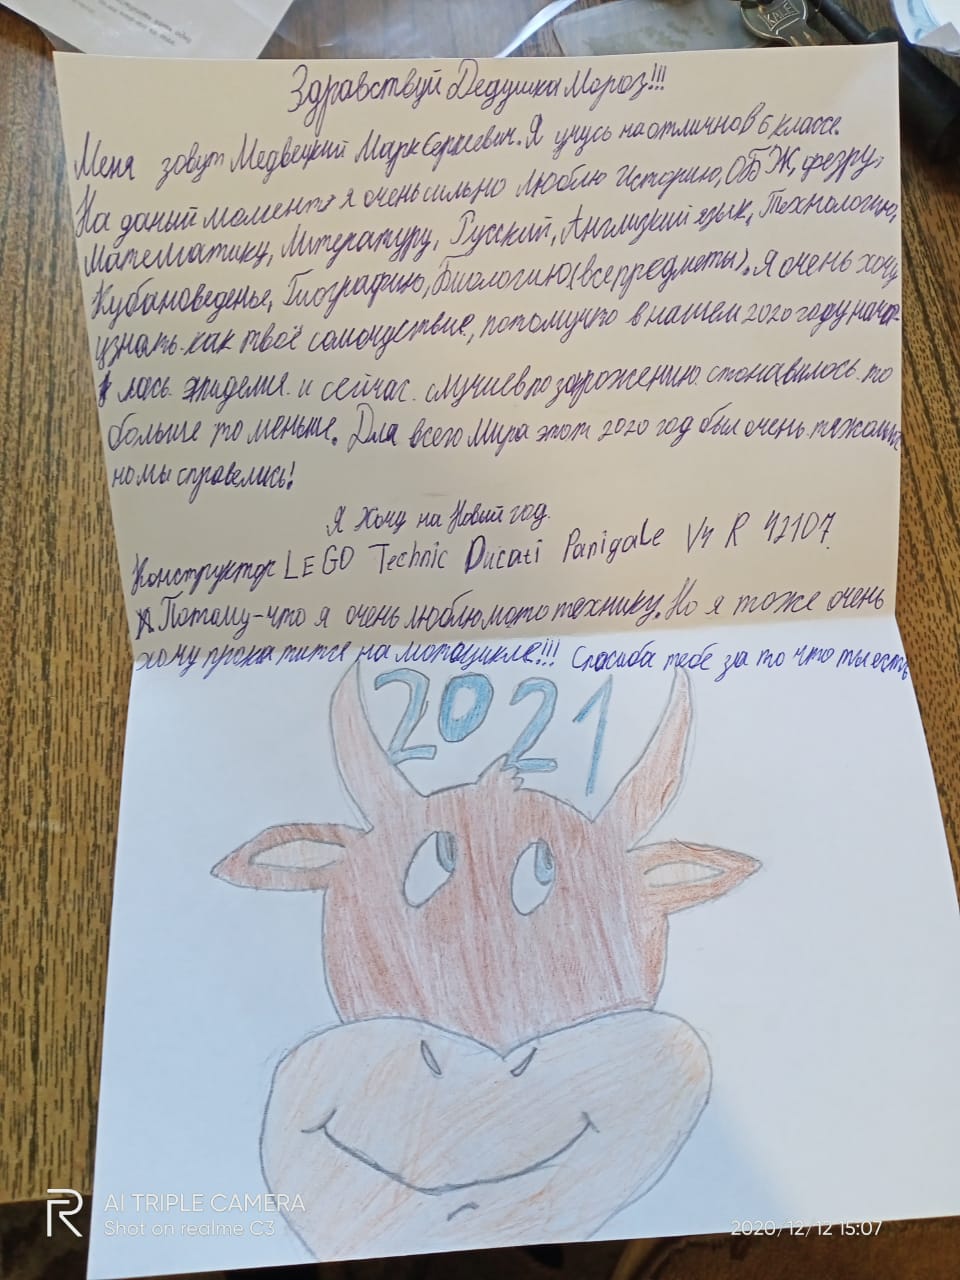 Здравствуй Дедушка Мороз!!!
Меня зовут Медвецкий Марк Сергеевич. Я учусь на отлично в 6 классе.
На даный момент я очень сильно люблю Историю, ОБЖ, физру,
Математику, Литературу, Русский, Англиский язык, Технологию,
Кубановеденье, Гиографию, Биологию (все предметы). Я очень хочу
узнать как твоё самочуствие, потомучто в нашем 2020 году нача
лась эпидемия и сейчас случиев по зарожению становилось то
больше то меньше. Для всего Мира этот 2020 год был очень тяжолый
но мы справелись!
Я Хочу на Новый год.
Конструктор LEGO Technic Ducati Panigale V4 R 42107.
Потому-что я очень люблю мототехнику. Но я тоже очень
хочу прокатится на мотоцикле!!! Спасиба тебе за то что ты есть
2021
KALE
AI TRIPLE CAMERA
Shot on realme C3
2020/12/12 15:07